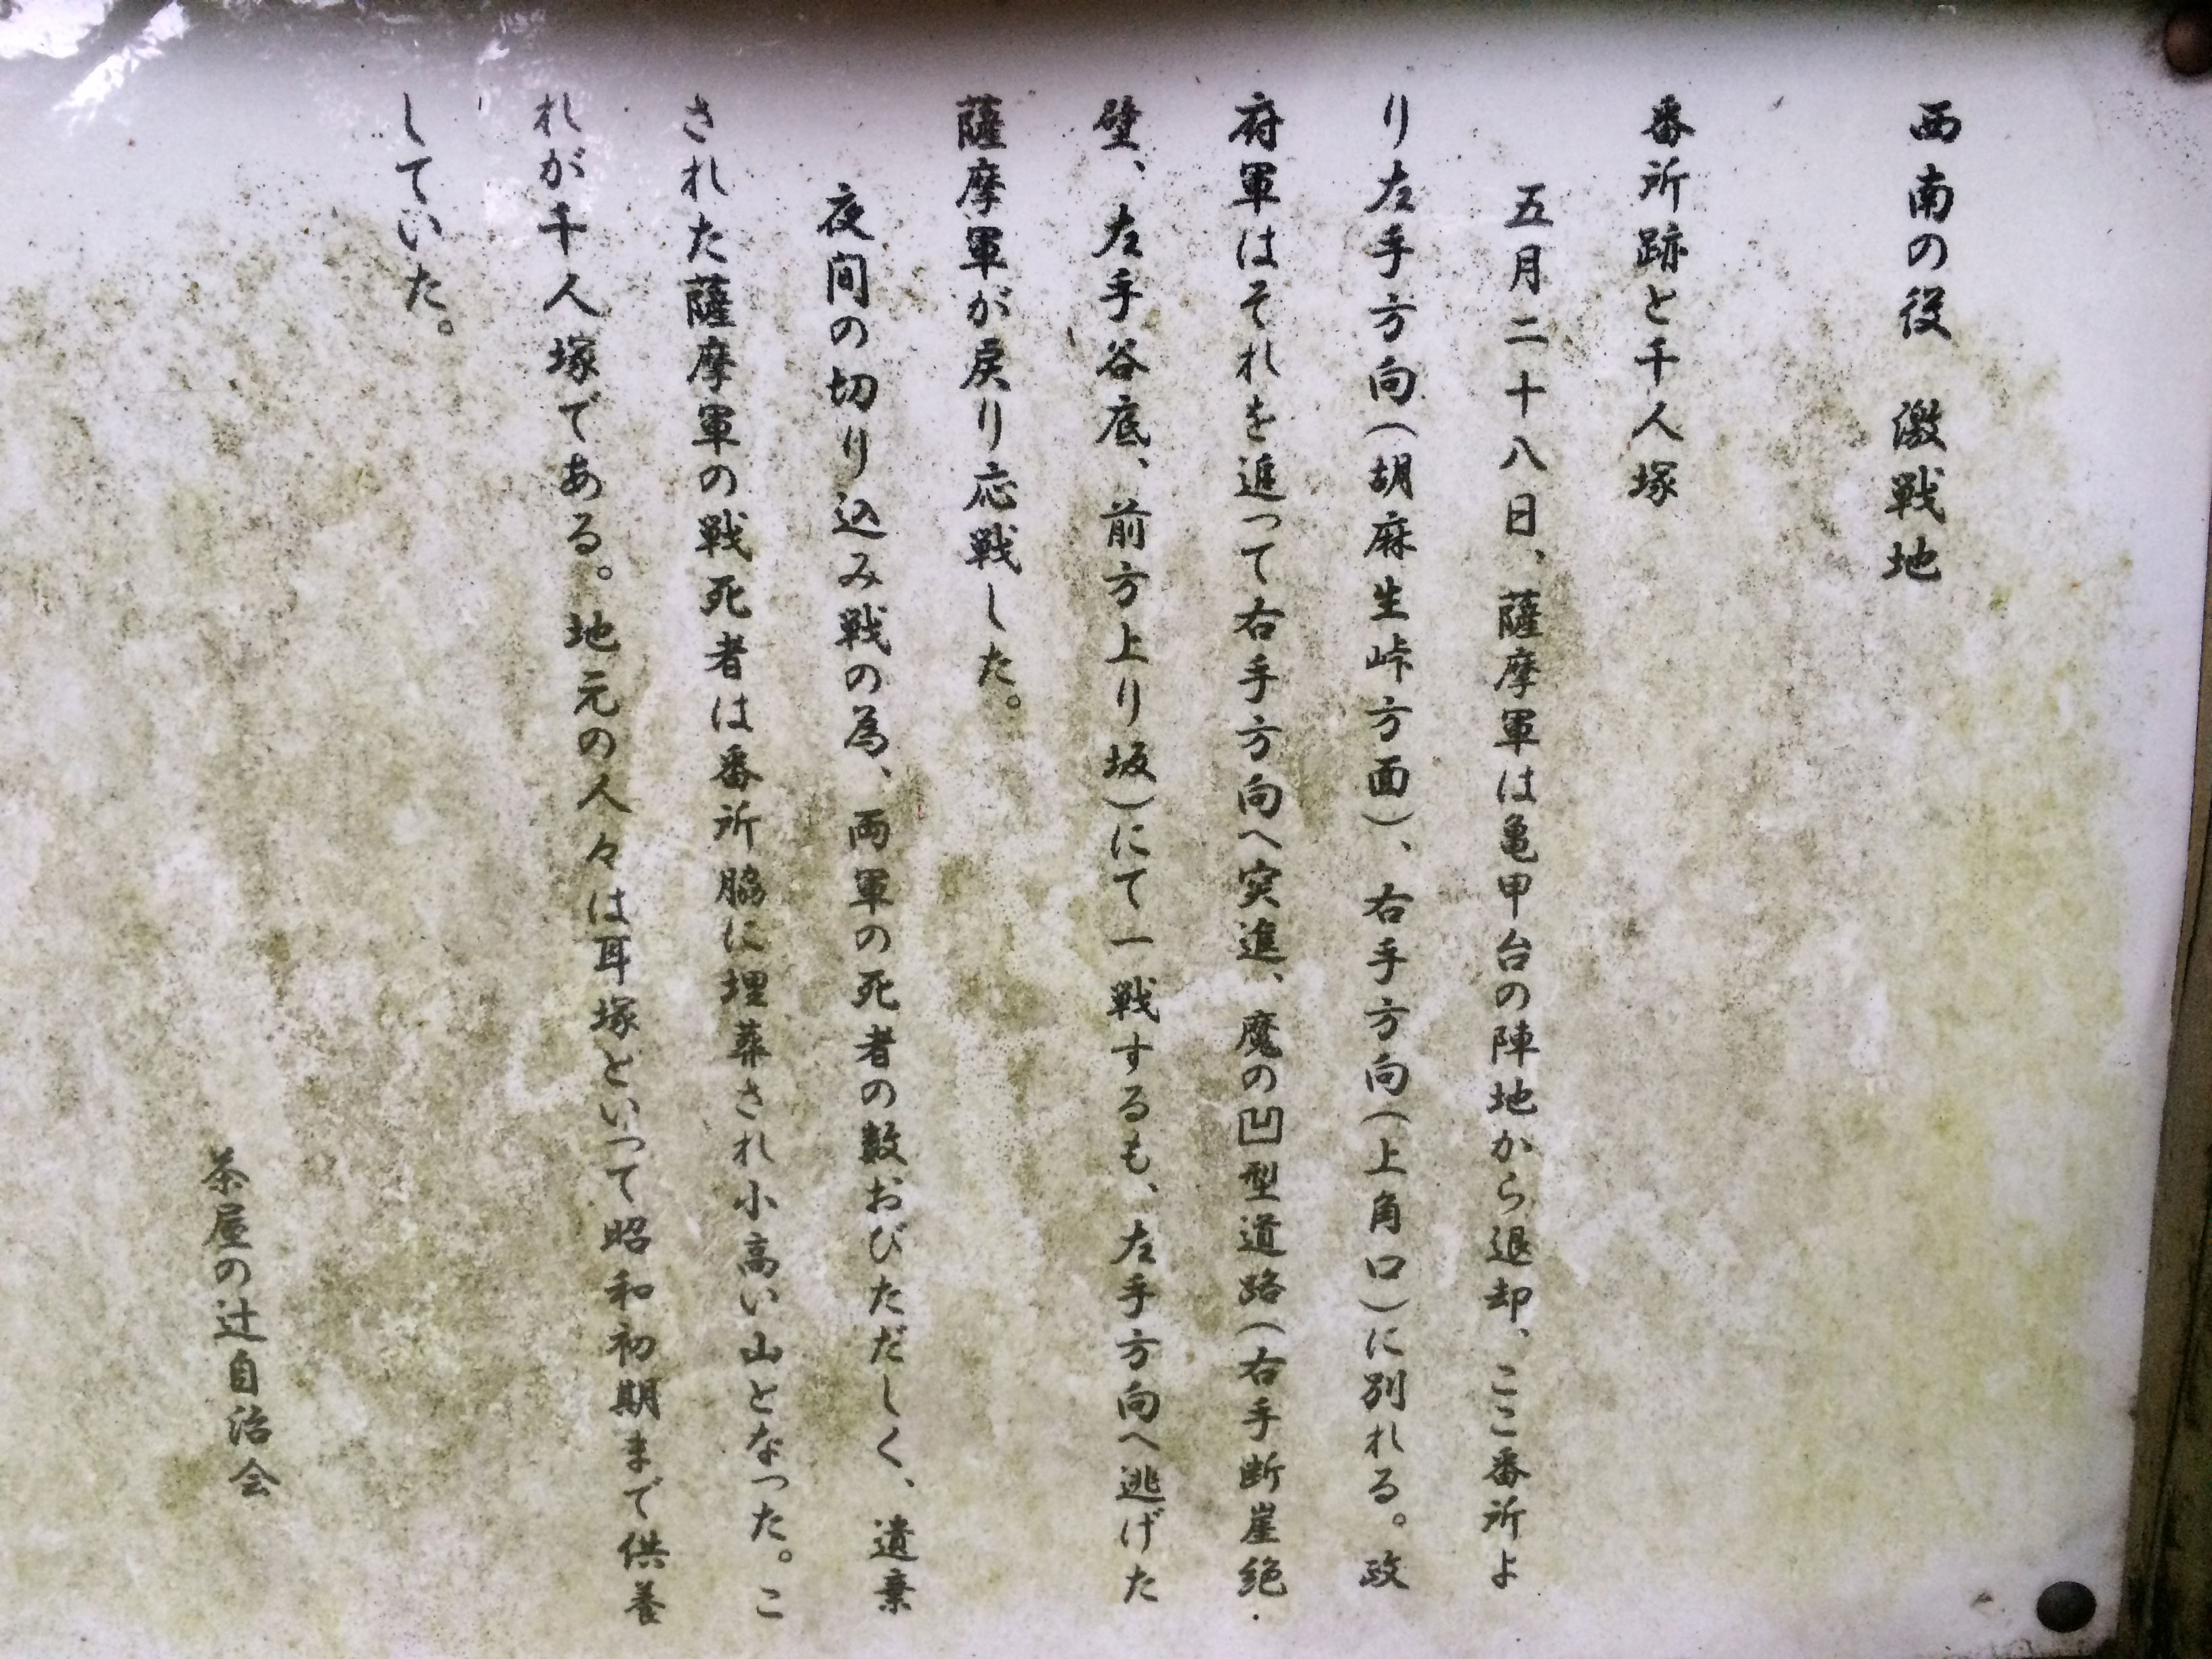 西南の役　激戦地
番所跡と千人塚
五月二十八日、薩摩軍は亀甲台の陣地から退却、ここ番所よ
り左手方向(胡麻生峠方面)、右手方向(上角口)に別れる。政
府軍はそれを追って右手方向へ突進、魔の凹型道路(右手断崖絶
壁、左手谷底、前方上り坂)にて一戦するも、左手方向へ逃げた
薩摩軍が戻り応戦した。
夜間の切り込み戦の為、両軍の死者の数おびただしく、遺棄
された薩摩軍の戦死者は番所脇に埋葬され小高い山となった。こ
れが千人塚である。地元の人々は耳塚といって昭和初期まで供養
していた。
茶屋の辻自治会